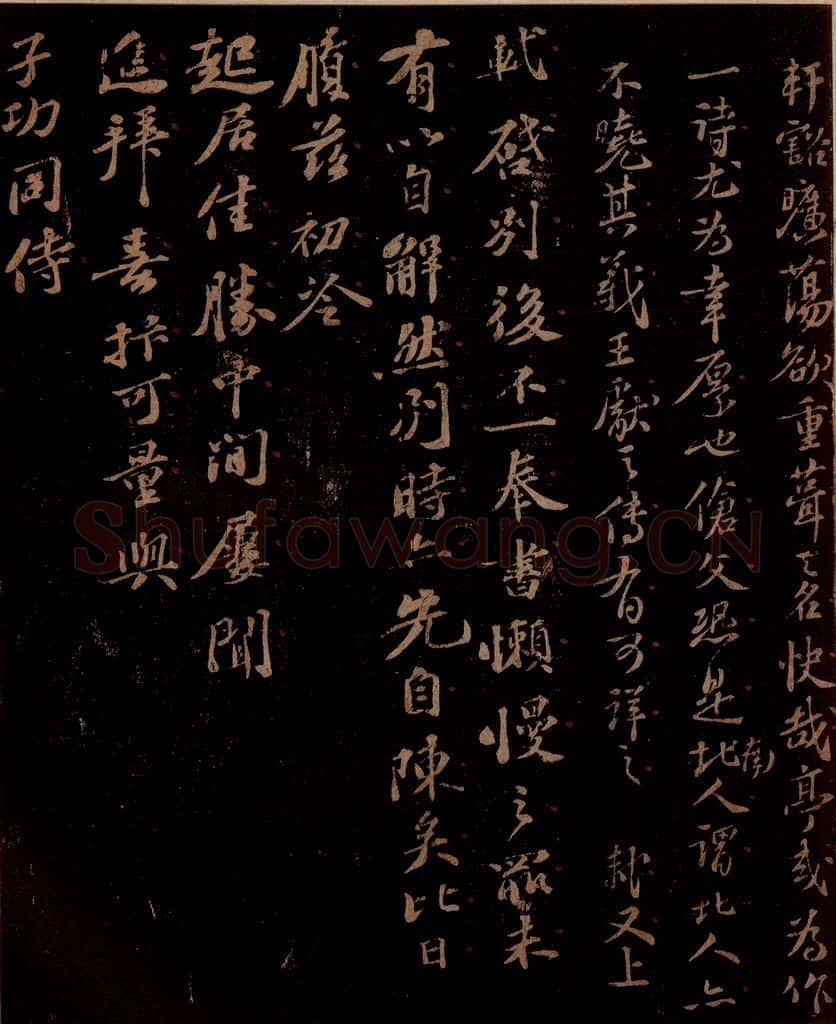 軒豁曠蕩欲重葺之名快哉亭或為作
一詩尤為幸厚也傖父恐是北人謂北人亦
南
不曉其義王獻之傳有可詳之 軾又上
軾啓別後不一奉書懶慢之罪未
有以自解然別時亦先自陳矣比日
履茲初冷
起居佳勝中間屢聞
進拜喜抃可量與
子功同侍
Shufawang.CN